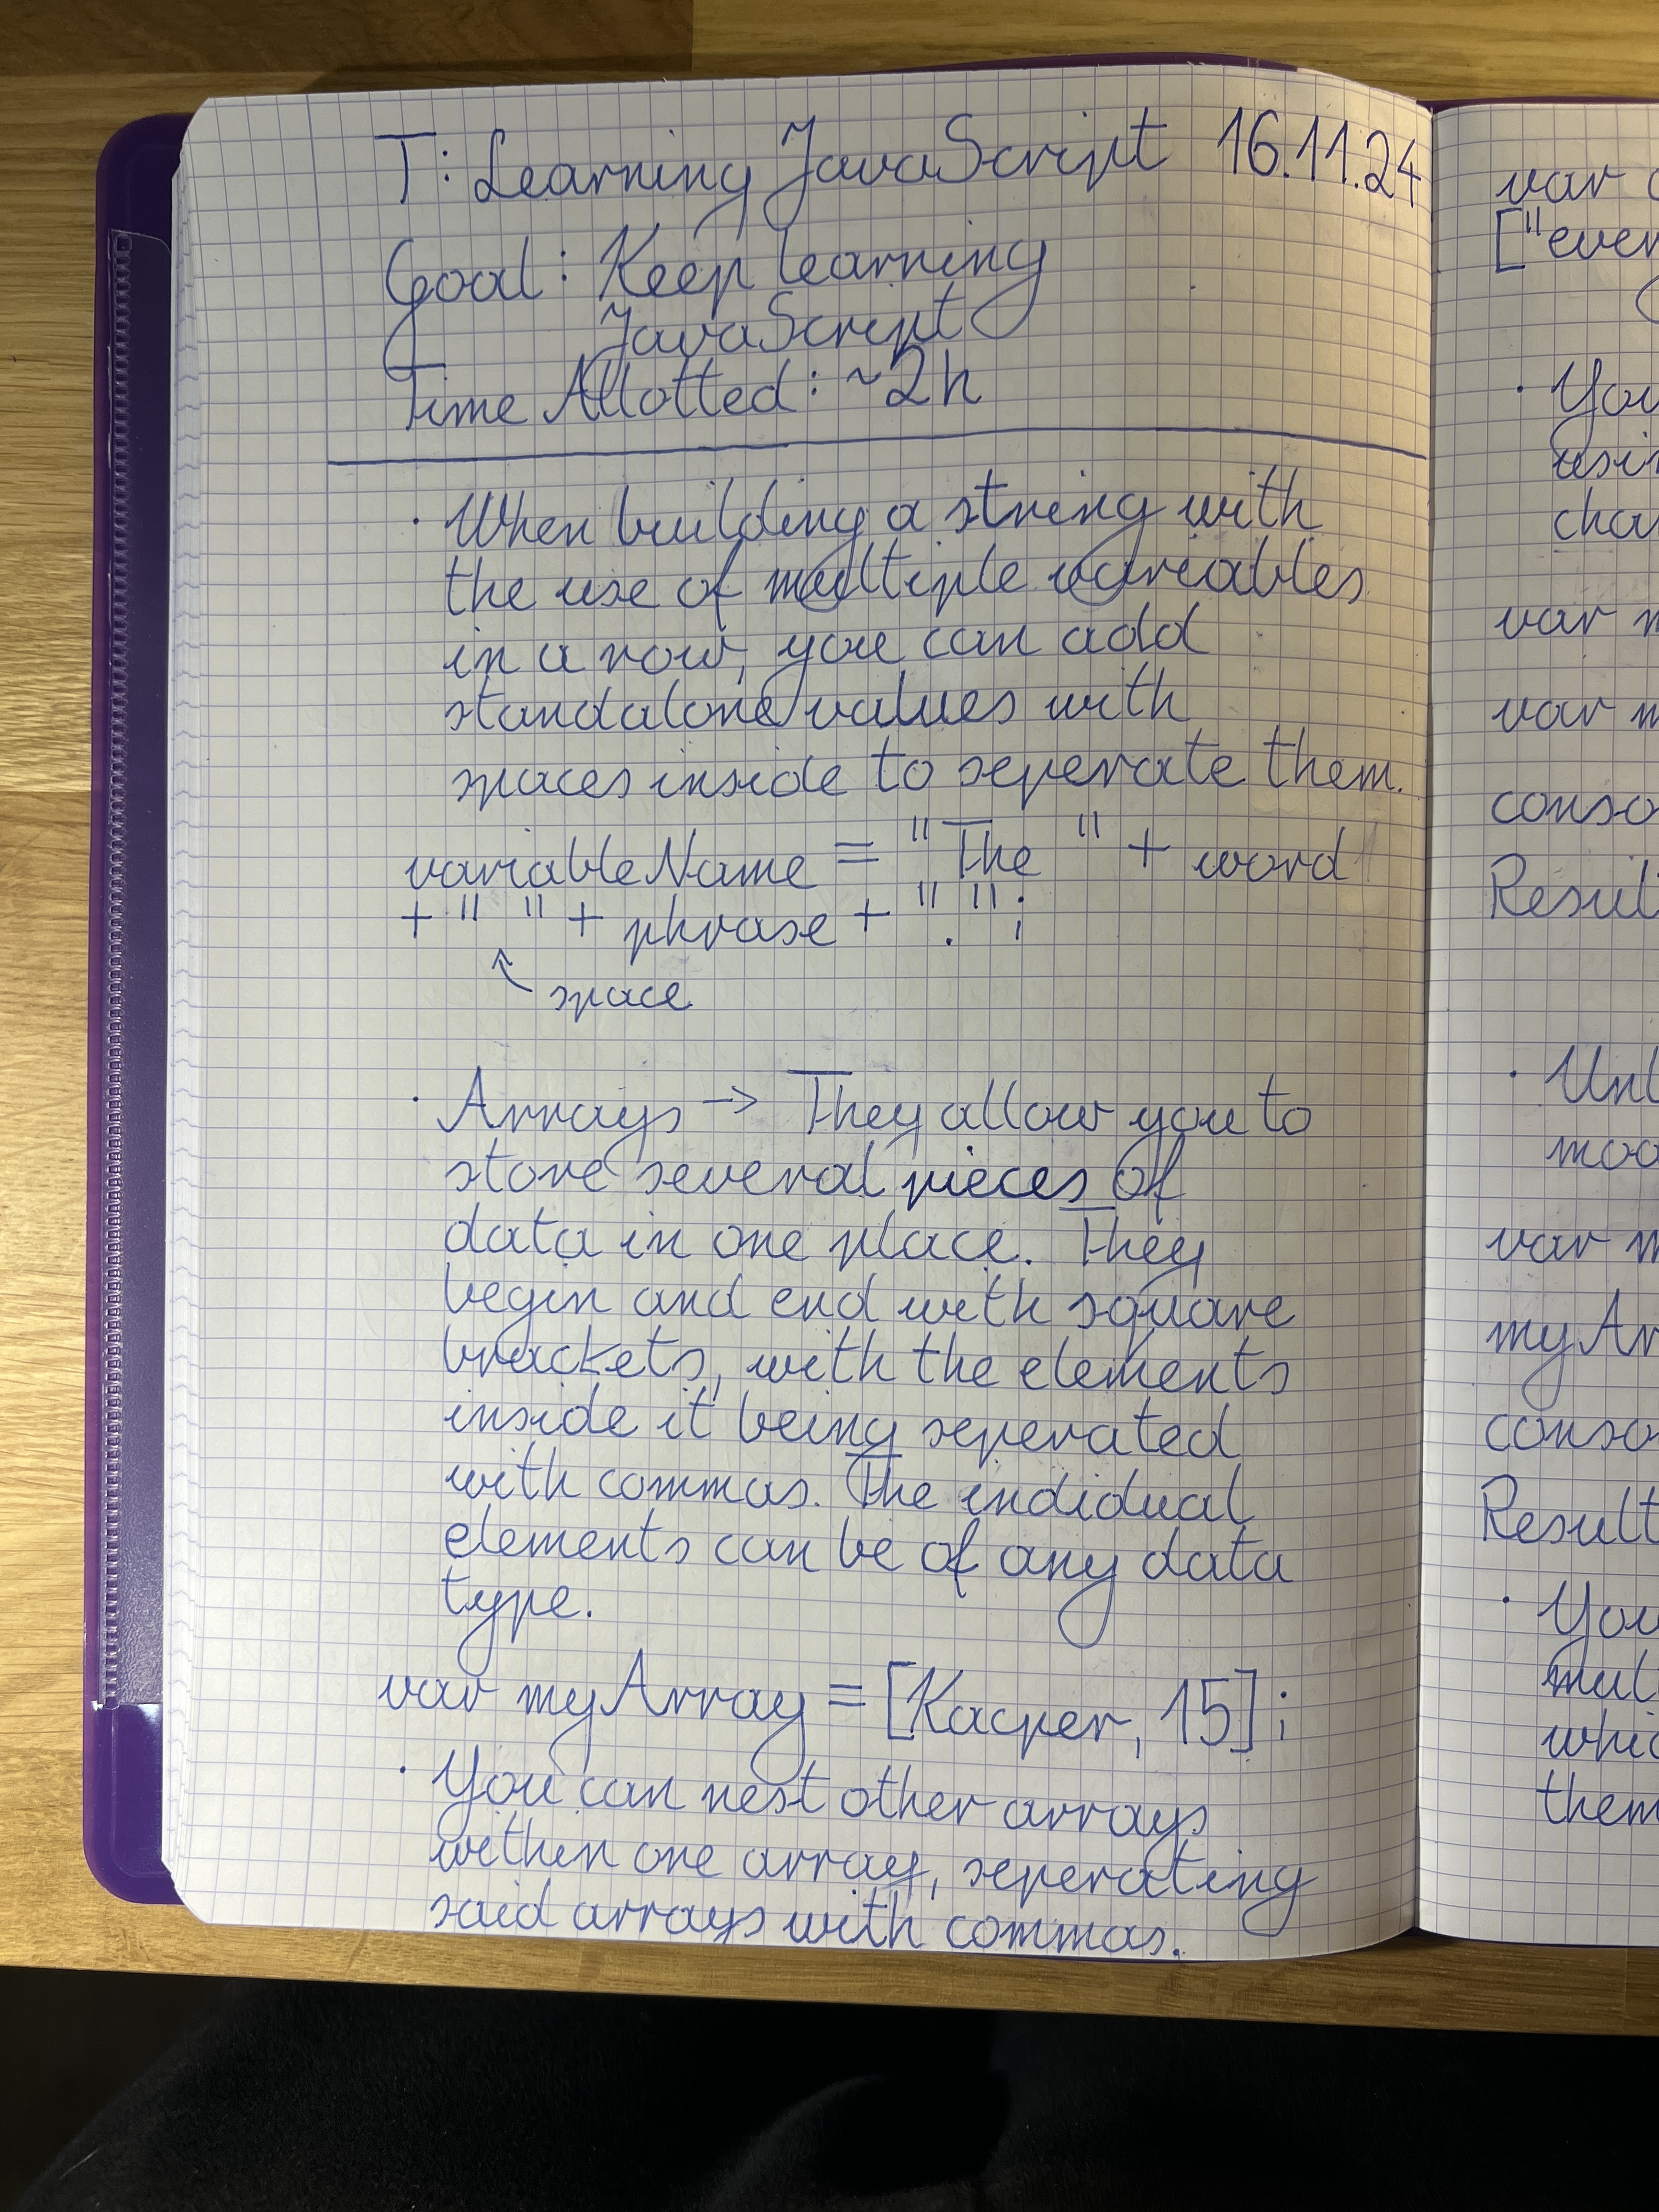 T: Learning JavaScript 16.11.24
Goal: Keep learning
JavaScript
Time Allotted: ~2h
· When building a string with
the use of multiple variables
in a row, you can add
standalone values with
spaces inside to seperate them.
variableName = "The " + word
+ " " + phrase + ".";
space
· Arrays → They allow you to
store several pieces of
data in one place. They
begin and end with square
brackets, with the elements
inside it being seperated
with commas. The indidual
elements can be of any data
type.
var myArray = [Kacper, 15];
· You can nest other arrays
within one array, seperating
said arrays with commas.
var
["ever
· You
usin
cha
var m
var m
conso
Resul
· Unl
mod
var m
myAr
conso
Result
· You
mul
whic
them